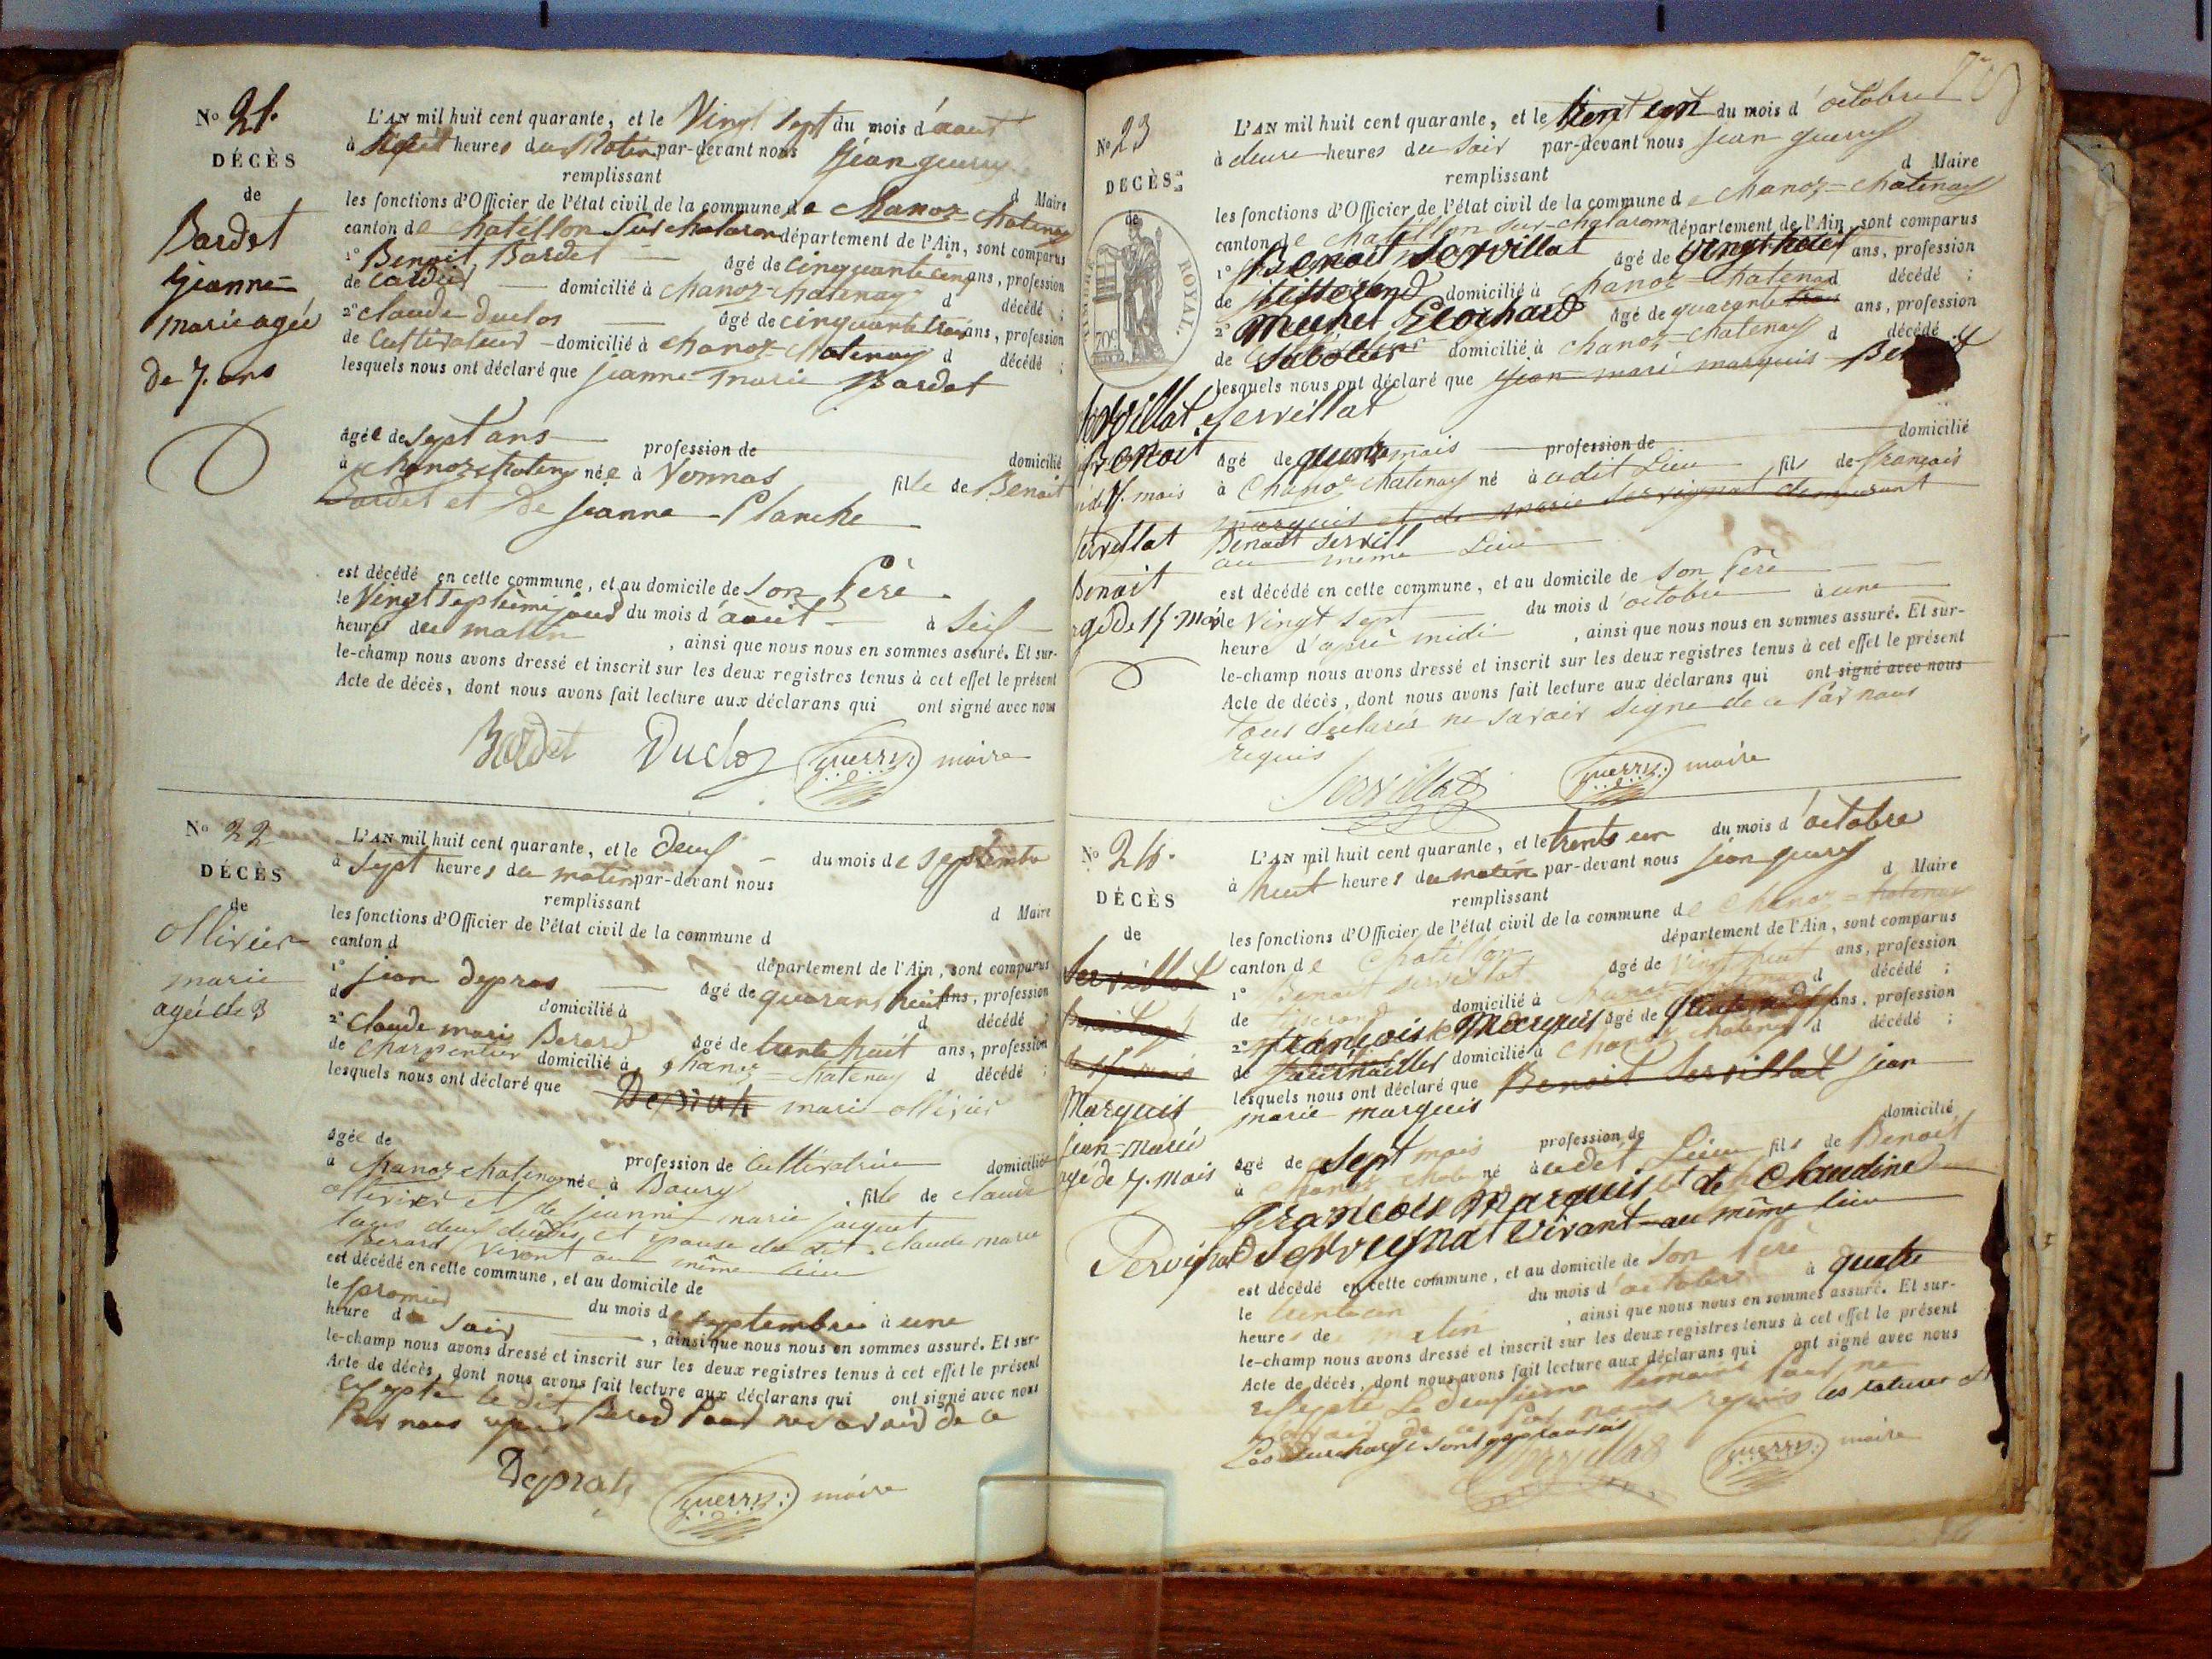 No 21.
DÉCÈS
de
Bardet
jeanne
marie agée
de 7. ans
L'AN mil huit cent quarante, et le Vingt sept du mois d'août
à heures du Matin par-devant nous jean guerry
remplissant d Maire
les fonctions d'Officier de l'état civil de la commune de Chanoz-Chatenay
canton de Chatillon sur chalaronne département de l'Ain, sont comparus
1° Benoit Bardet âgé de cinquante cinq ans, profession
de domicilié à chanoz-chatenay d décédé ;
2° claude duclos âgé de cinquante trois ans, profession
de Cultivateur domicilié à chanoz-chatenay d décédé ;
lesquels nous ont déclaré que jeanne marie Bardet
âgée de sept ans profession de domicilié
à chanoz chatenay née à Vonnas fille de Benoit
Bardet et de jeanne Planche
est décédé en cette commune, et au domicile de son Père
le Vingt septième jour du mois d'août à
heures du matin, ainsi que nous nous en sommes assuré. Et sur-
le-champ nous avons dressé et inscrit sur les deux registres tenus à cet effet le présent
Acte de décès, dont nous avons fait lecture aux déclarans qui ont signé avec nous
Bardet Duclos guerry maire
No 22
DÉCÈS
de
ollivier
marie
agée de 3
L'AN mil huit cent quarante, et le deux du mois de septembre
à sept heures du matin par-devant nous
remplissant d Maire
les fonctions d'Officier de l'état civil de la commune d
canton d département de l'Ain, sont comparus
1° jean depras âgé de quarante huit ans, profession
d domicilié à d décédé ;
2° claude marie Berard âgé de trente huit ans, profession
de charpentier domicilié à chanoz-chatenay d décédé ;
lesquels nous ont déclaré que marie ollivier
âgée de profession de cultivatrice domiciliée
à chanoz chatenay née à fille de claude
ollivier et de jeanne marie jacquet
tous deux décédés et épouse du dit claude marie
berard vivant au même lieu
est décédé en cette commune, et au domicile de
le premier du mois de septembre à une
heure du soir, ainsi que nous nous en sommes assuré. Et sur-
le-champ nous avons dressé et inscrit sur les deux registres tenus à cet effet le présent
Acte de décès, dont nous avons fait lecture aux déclarans qui ont signé avec nous
excepté le dit Berard Pour ne savoir de ce
Par nous requis
Deprah guerry maire
No 23
DÉCÈS
de
TIMBRE ROYAL.
70c
Servillat
Benoit
de 15. mois
Servillat
Benoit
agé de 15 mois
L'AN mil huit cent quarante, et le trente un du mois d'octobre
à deux heures du soir par-devant nous jean guerry
remplissant d Maire
les fonctions d'Officier de l'état civil de la commune de chanoz-chatenay
canton de chatillon sur-chalaronne département de l'Ain, sont comparus
1° Benoit Servillat âgé de vingt huit ans, profession
de tisserand domicilié à chanoz-chatenay d décédé ;
2° Michel Ecochard âgé de quarante trois ans, profession
de Sabotier domicilié à chanoz-chatenay d décédé
lesquels nous ont déclaré que jean marie marquis
Servillat
âgé de quinze mois profession de domicilié
à Chanoz chatenay né à udit Lieu fils de françois
marquis et de marie Servignat demeurant
Benoit servill
au même Lieu
est décédé en cette commune, et au domicile de son Père
le Vingt sept du mois d'octobre à une
heure d'après midi, ainsi que nous nous en sommes assuré. Et sur-
le-champ nous avons dressé et inscrit sur les deux registres tenus à cet effet le présent
Acte de décès, dont nous avons fait lecture aux déclarans qui ont signé avec nous
tous déclarés ne savoir signe de ce Par nous
requis
Servillat guerry maire
No 24.
DÉCÈS
de
Servillat
Marquis
jean-marie
agé de 7. mois
L'AN mil huit cent quarante, et le trente un du mois d'octobre
à huit heures du matin par-devant nous jean guerry
remplissant d Maire
les fonctions d'Officier de l'état civil de la commune de chanoz-chatenay
canton de Chatillon département de l'Ain, sont comparus
1° Benoit servillat âgé de vingt huit ans, profession
de tisserand domicilié à chanoz d décédé ;
2° françois Marquis âgé de ans, profession
de domicilié à chanoz chatenay d décédé ;
lesquels nous ont déclaré que Benoit Servillat jean
marie marquis
âgé de sept mois profession de domicilié
à chanoz né à udit Lieu fils de Benoit
François Marquis et de Claudine
Servignat Vivant au même lieu
est décédé en cette commune, et au domicile de son Père
le trente un du mois d'octobre à quatre
heures de matin, ainsi que nous nous en sommes assuré. Et sur-
le-champ nous avons dressé et inscrit sur les deux registres tenus à cet effet le présent
Acte de décès, dont nous avons fait lecture aux déclarans qui ont signé avec nous
excepté Le deuxième temoins Pour ne
savoir de ce Par nous requis les ratures et
Les surcharges sont approuvés
guerry maire